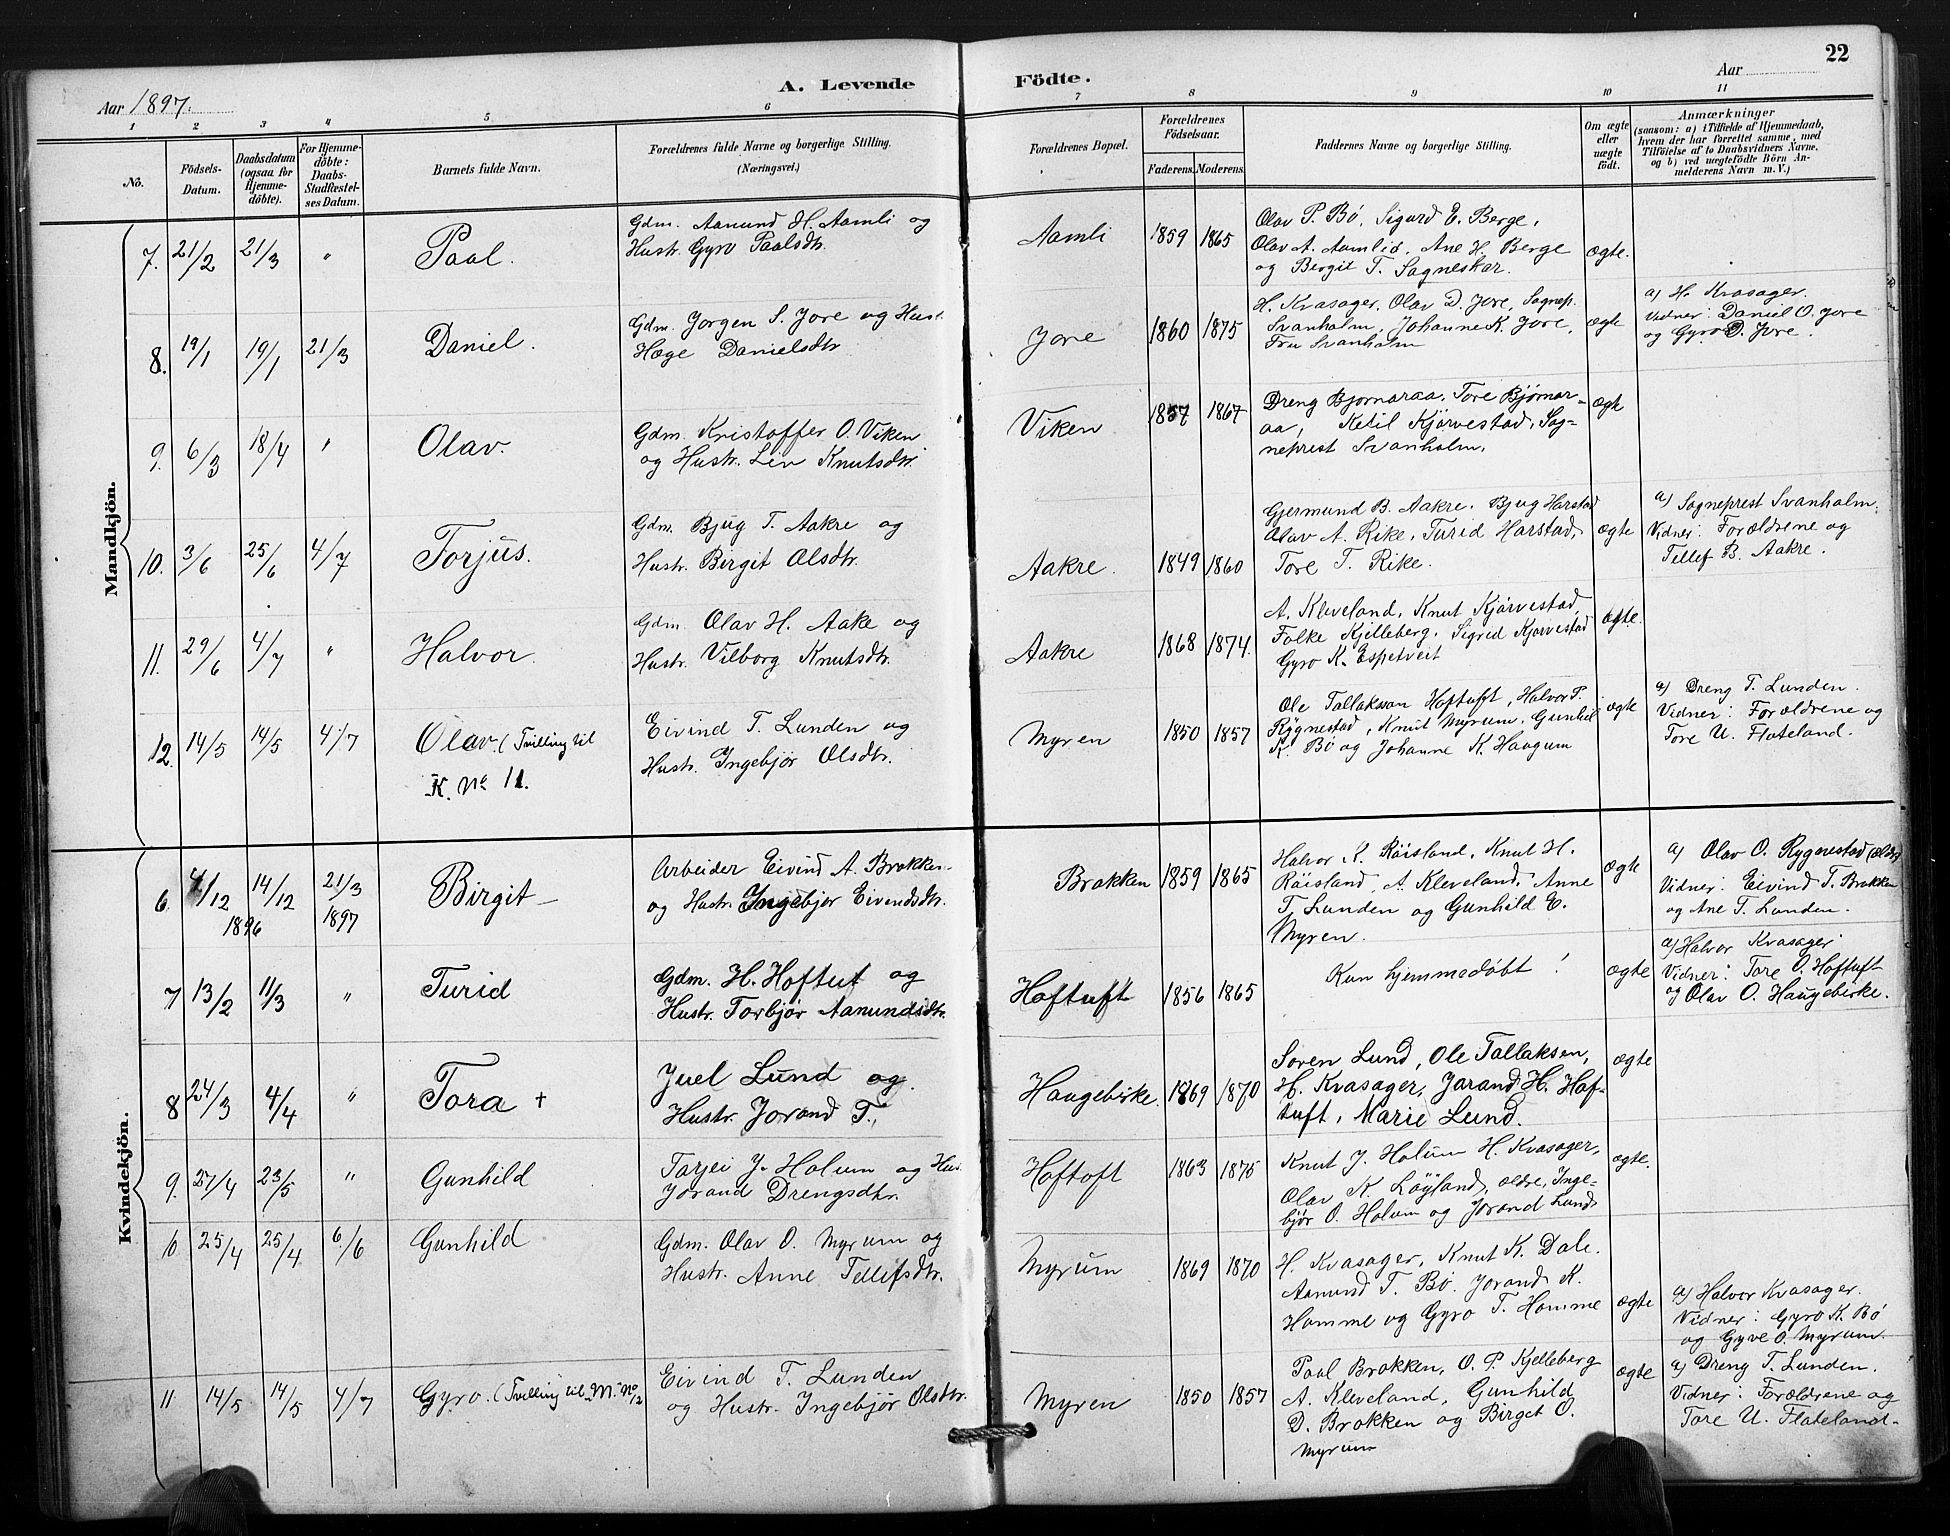 22
Aar 1897.
A. Levende
Födte.
Aar
1 2 3 4 5 6 7 8 9 10 11
No.
Födsels-
Datum.
Daabsdatum
(ogsaa for
Hjemme-
døbte).
For Hjemme-
döbte:
Daabs-
Stadfæstel-
ses Datum.
Barnets fulde Navn.
Forældrenes fulde Navne og borgerlige Stilling.
(Næringsvei.)
Forældrenes Bopæl.
Forældrenes
Födselsaar.
Faderens. Moderens.
Faddernes Navne og borgerlige Stilling.
Om ægte
eller
uægte
födt.
Anmærkninger
(saasom: a) i Tilfælde af Hjemmedaab,
hvem der har forrettet samme, med
Tilföielse af to Daabsvidners Navne,
og b) ved uægtefödte Börn An-
melderens Navn m. V.)
Mandkjön.
7. 21/2 21/3 " Paal.
Gdm. Aamund H. Aamli og
Hustr. Gyro Paalsdtr.
Aamli 1859 1865
Olav P. Bø, Sigurd E. Berge,
Olav A. Aamlid, Ane H. Berge
og Bergit T. Sagneskar.
ægte.
8. 19/1 19/1 21/3 Daniel.
Gdm. Jorgen S. Jore og Hust.
Hæge Danielsdtr.
Jore 1860 1875
H. Kvasager, Olav D. Jore, Sognep.
Svanholm, Johanne K. Jore,
Fru Svanholm
ægte
a) H. Kvasager.
Vidner: Daniel O. Jore
og Gyro D. Jore.
9. 6/3 18/4 " Olav.
Gdm. Kristoffer O. Viken
og Hustr. Liv Knutsdtr.
Viken 1857 1867
Dreng Bjornaraa, Tore Bjørnar-
aa, Ketil Kjørvestad, Sog-
neprest Svanholm.
ægte
10. 3/6 25/6 4/7 Torjus.
Gdm. Bjug T. Aakre og
Hustr. Birgit Olsdtr.
Aakre. 1849 1860
Gjermund B. Aakre. Bjug Harstad
Olav A. Rike, Turid Harstad,
Tore T. Rike.
ægte
a) Sogneprest Svanholm.
Vidner: Forældrene og
Tellef B. Aakre.
11. 29/6 4/7 " Halvor.
Gdm. Olav H. Aake og
Hustr. Vilborg Knutsdtr.
Aakre 1868 1874.
A. Kleveland, Knut Kjørvestad,
Folke Kjelleberg, Sigrid Kjorvestad
Gyro K. Espetveit
ægte.
12. 14/5 14/5 4/7 Olav. (Tvilling til
K. No 11.
Eivind T. Lunden og
Hustr. Ingebjør Olsdtr.
Myren 1850 1857
Ole Tallakson Hoftuft, Halvor P.
Rygnestad, Knut Myrum, Gunhil
K. Bø og Johanne K. Haugum
ægte
a) Dreng T. Lunden.
Vidner: Forældrene og
Tore U. Flateland.
Kvindekjön.
6. 4/12 14/12 21/3
1896 1897
Birgit
Arbeider Eivind A. Brokken
og Hustr. Ingebjør Eivendsdtr.
Brokken 1859 1865
Halvor K. Røisland, Knut H.
Røisland, A. Kleveland, Anne
T. Lunden og Gunhild E.
Myren.
ægte
a) Olav O. Rygnestad (ældre)
Vidner: Eivind T. Brokken
og Ane T. Lunden.
7 13/2 11/3 " Turid
Gdm. H. Hoftuft og
Hustr. Torbjør Aamundsdtr.
Hoftuft 1856 1865
Kun hjemmedøbt!
ægte
a) Halvor Kvasager
Vidner: Tore O. Hoftuft
og Olav O. Haugebirke.
8 24/3 4/4 " Tora +
Juel Lund og
Hustr. Jorand T.
Haugebirke. 1869 1870
Soren Lund, Ole Tallaksen,
H. Kvasager, Jorand H. Hof-
tuft, Marie Lund.
ægte
9. 27/4 23/5 " Gunhild
Tarjei J. Holum og Hus.
Jorand Drengsdtr.
Hoftoft 1863 1875
Knut J. Holum H. Kvasager,
Olav K. Løyland, ældre, Inge-
bjør O. Holum og Jorand Lund
ægte.
10 25/4 25/4 6/6 Gunhild
Gdm. Olav O. Myrum og
Hustr. Anne Tellefsdtr.
Myrum 1869 1870
H. Kvasager, Knut K. Dale.
Aamund T. Bø, Jorand K.
Homme og Gyro T. Homme
ægte
a) Halvor Kvasager.
Vidner: Gyro K. Bø
og Gyve O. Myrum.
11 14/5 14/5 4/7 Gyro. (Tvilling til M. No 12
Eivind T. Lunden
og Hustr. Ingebjør Olsdtr.
Myren 1850 1857
Paal Brokken, O. P. Kjelleberg
A. Kleveland, Gunhild
D. Brokken og Birget O.
Myrum
ægte
a) Dreng T. Lunden.
Vidner: Forældrene og
Tore U. Flateland.